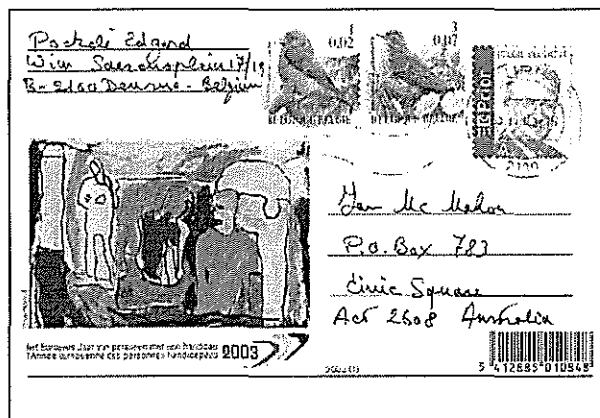 Edgard
Wim Saerensplein 17/
B-2100 Deurne - Belgium
1
0,02
3
0,07
BELGIQUE BELGIE
2100
P.O. Box 783
Civic Square
Act 2608 Australia
Het Europees Jaar van personen met een handicap
l'Année européenne des personnes handicapées 2003
5 412885 010848